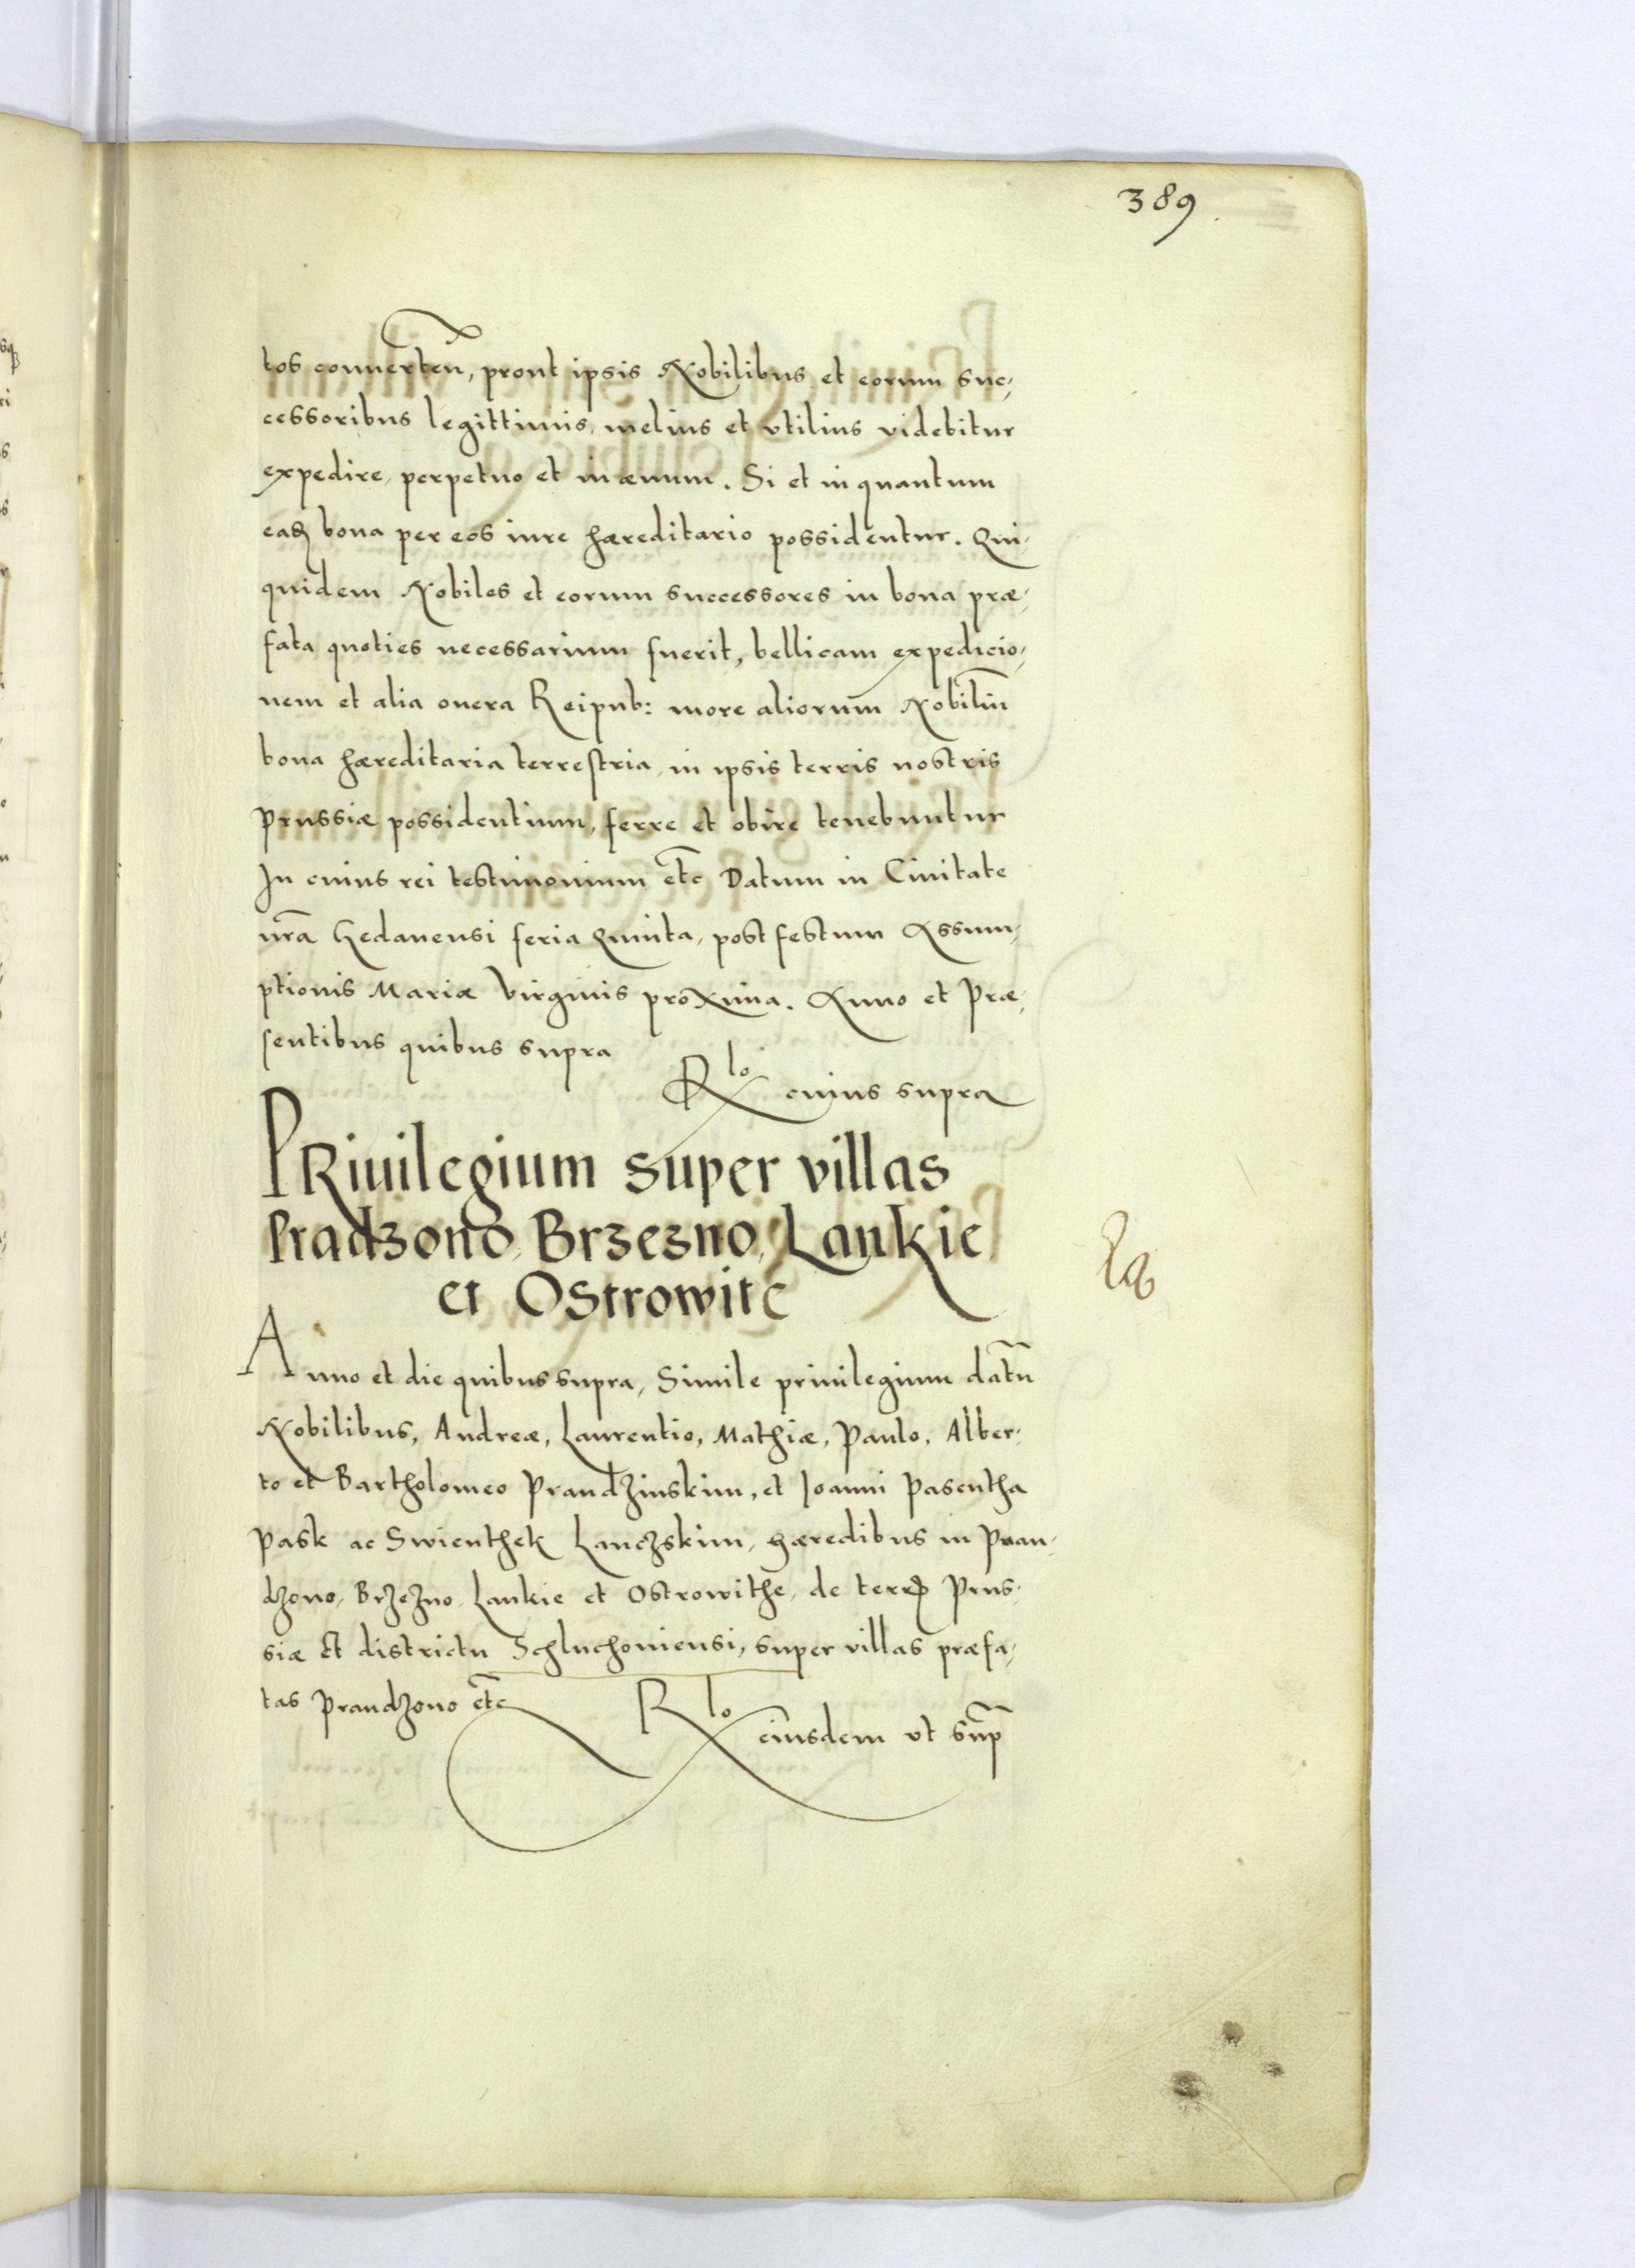 389
tos conuerten̄, prout ipsis Nobilibus et eorum suc-
cessoribus legittimis, melius et vtilius videbitur
expedire, perpetuo et in æuum. Si et in quantum
eadē bona per eos iure hæreditario possidentur. Qui-
quidem Nobiles et eorum successores in bona præ-
fata quoties necessarium fuerit, bellicam expedicio-
nem et alia onera Reipub: more aliorum Nobiliū
bona hæreditaria terrestria, in ipsis terris nostris
Prussiæ possidentium, ferre et obire tenebuntur
In cuius rei testimonium etc̄ Datum in Ciuitate
nr̄a Gedanensi feria Quinta, post festum Assum-
ptionis Mariæ Virginis proxima. Anno et Præ-
sentibus quibus supra
Rlo cuius supra
PRiuilegium super villas
Pradzono, Brzezno, Lankie
et Ostrowite
Anno et die quibus supra, Simile priuilegium datū
Nobilibus, Andreæ, Laurentio, Mathiæ, Paulo, Alber-
to et Bartholomeo Prandzinskim, et Joanni Pasentha
Pask ac Swienthek Lanczskim, hæredibus in Pran-
dzono, Brzezno, Lankie et Ostrowithe, de terrꝭ Prus-
siæ et districtu Schluchoniensi, super villas præfa-
tas Prandzono etc̄
Rlo eiusdem vt sup̄